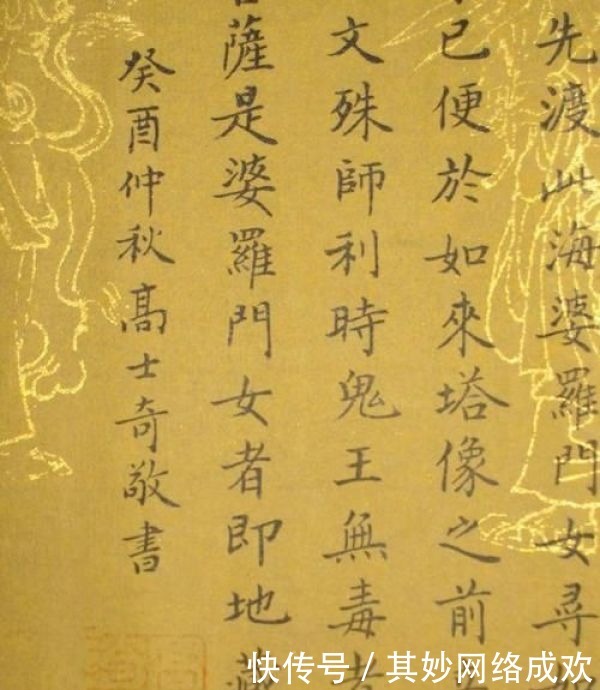 先渡此海婆羅門女尋
已便於如來塔像之前
文殊師利時鬼王無毒者
菩薩是婆羅門女者即地藏
癸酉仲秋高士奇敬書
快传号／其妙网络成欢